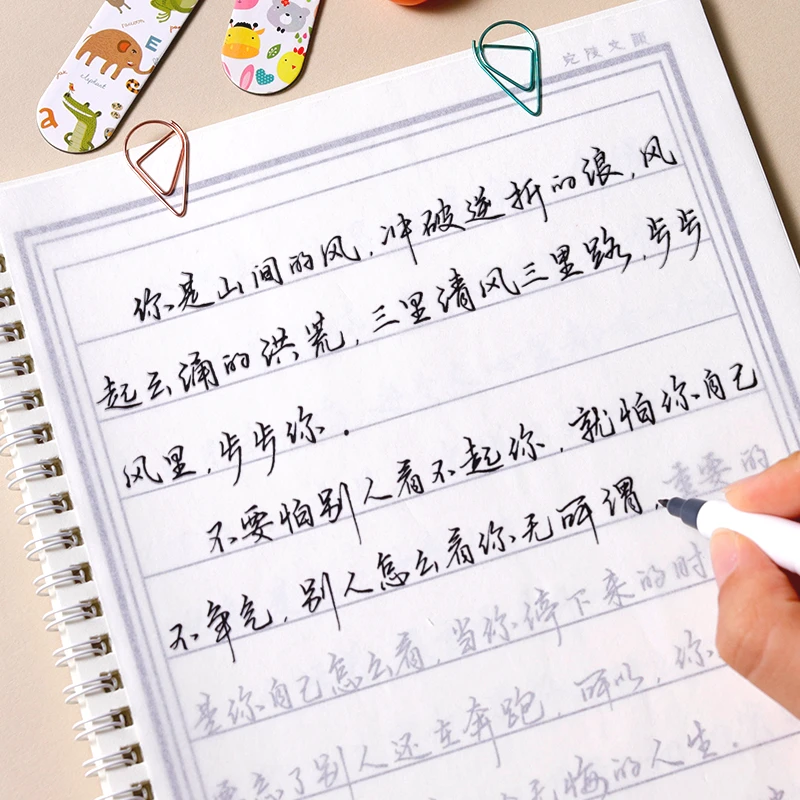 elephant
E
你是山间的风,冲破逆折的浪,风
起云涌的洪荒,三里清风三里路,步步
风里,步步你.
不要怕别人看不起你,就怕你自己
不争气,别人怎么看你无所谓,重要的
是你自己怎么看,当你停下来的时
要忘了别人还在奔跑,所以,你
无悔的人生.